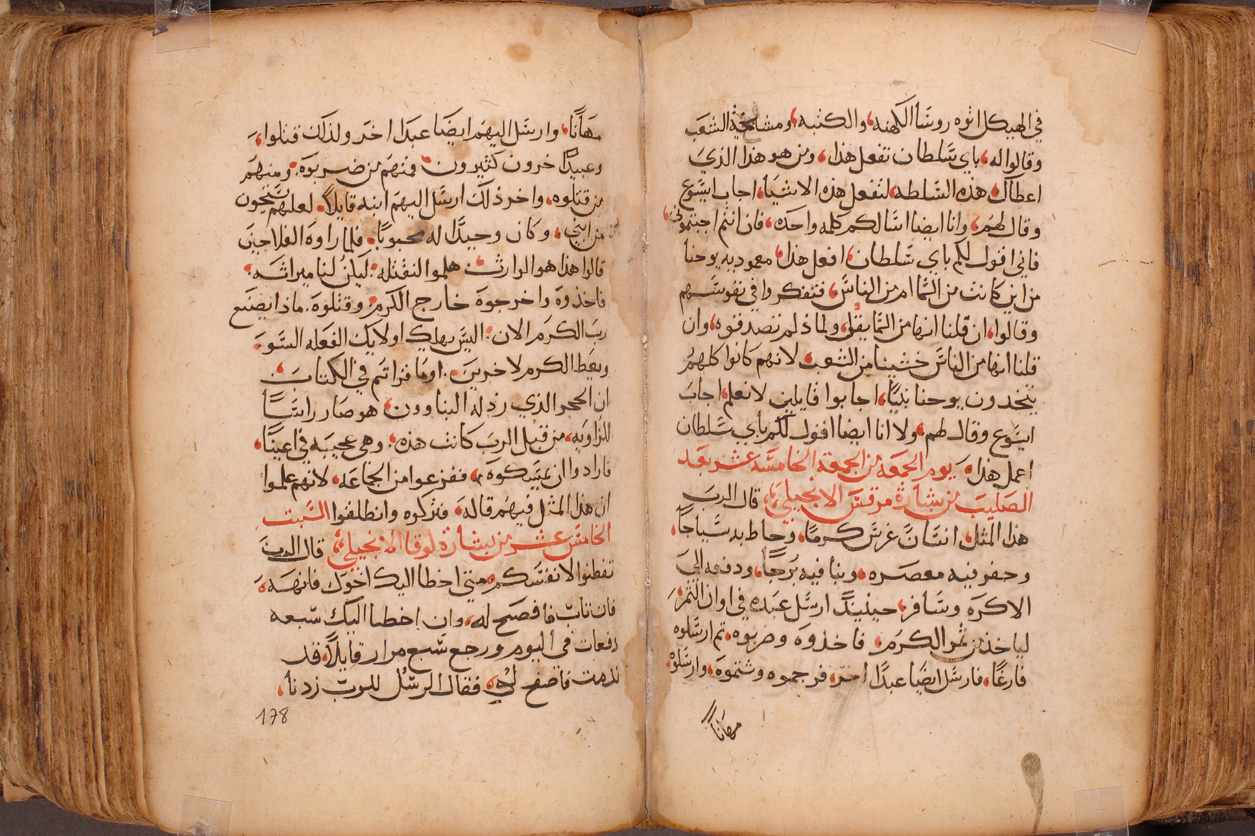 في الهيكل اتوه روسا الكهنه، والكتبه، ومشايخة الشعب
وقالوا له، باي سلطان تفعل هذا، ومن هو هذا الذي
اعطاك هذه السلطه لتفعل هذه الاشيا، اجاب ايسوع
وقال لهم، وانا ايضا اسالكم كلمه واحده، فان انتم اجبتموني،
فاني اقول لكم باي سلطان، افعل هذا، معموديه يوحنا
من اين كانت من السما ام من الناس، فتفكروا في نفوسهم
وقالوا، ان قلنا انها من السما يقل، ولماذا لم تصدقوه، وان
قلنا انها من الناس خشينا من الشعب، لانهم كانوا كلهم
يتخدون يوحنا نبيًا، اجابوا قايلين لا نعلم، اجاب
ايسوع وقال لهم، ولا انا ايضا اقول لكم باي سلطان
اعمل هذا، يوم الجمعه من الجمعه الخامسة عشر بعد
الصليب من بشارة مرقس الانجيلي، قال الرب
هذا المثل، انسان غرس كرمًا، وحاط به سياجًا،
وحفر فيه معصره، وبنا فيه برجًا، ودفعه الى
الاكره وسافر، حينيدٍ ارسل عبده في اوان الثمر،
لياخذ من ثمر الكرم، فاخذوه وضربوه، ثم ارسلوه
فارغًا، فارسل ايضا عبدًا اخر، فرجموه وشتموه، وارسلوه
مهانًا
مهانًا، وارسل اليهم ايضا عبدا اخر ولذلك قتلوا،
وعبيدًا خرون كثيرون، فمنهم من ضربوه، ومنهم
من قتلوه، واخر ذلك ارسل اليهم ابنه قايلًا، لعلهم يستحون
من ابني، وكان وحيدًا له محبوبًا، فلما راوه الفلاحين
قالوا هذا هو الوارث هلموا لنقتله، ليكن لنا ميراثه،
فاخذوه واخرجوه خارج الكرم، وقتلوه، ماذا يصنع
رب الكرم الان، اليس يهلك اولايك الفعله السو،
ويعطا الكرم لاخرين، اوما قراتم في الكتاب،
ان الحجر الذي رذله البناوون، هو صار راسًا
للزاويه، من قبل الرب كانت هذه، وهي عجيبه في اعيننا،
فارادوا ان يمسكوه، ففزعوا من الجماعه، لانهم علموا
ان هذا المثل فيهم قاله، فتركوه وانطلقوا السبت
الخامس عشر من بشارة لوقا الانجيلي، قال الرب
تفطنوا لانفسكم، متى اخطا اليك اخوك فانهه،
فان تاب فاصفح له، وان اخطا اليك سبعه
دفعات في اليوم، ورجع سبع مرار قايلًا، قد
ندمت فاصفح لي، فقال الرسل للرب زدنا،
178